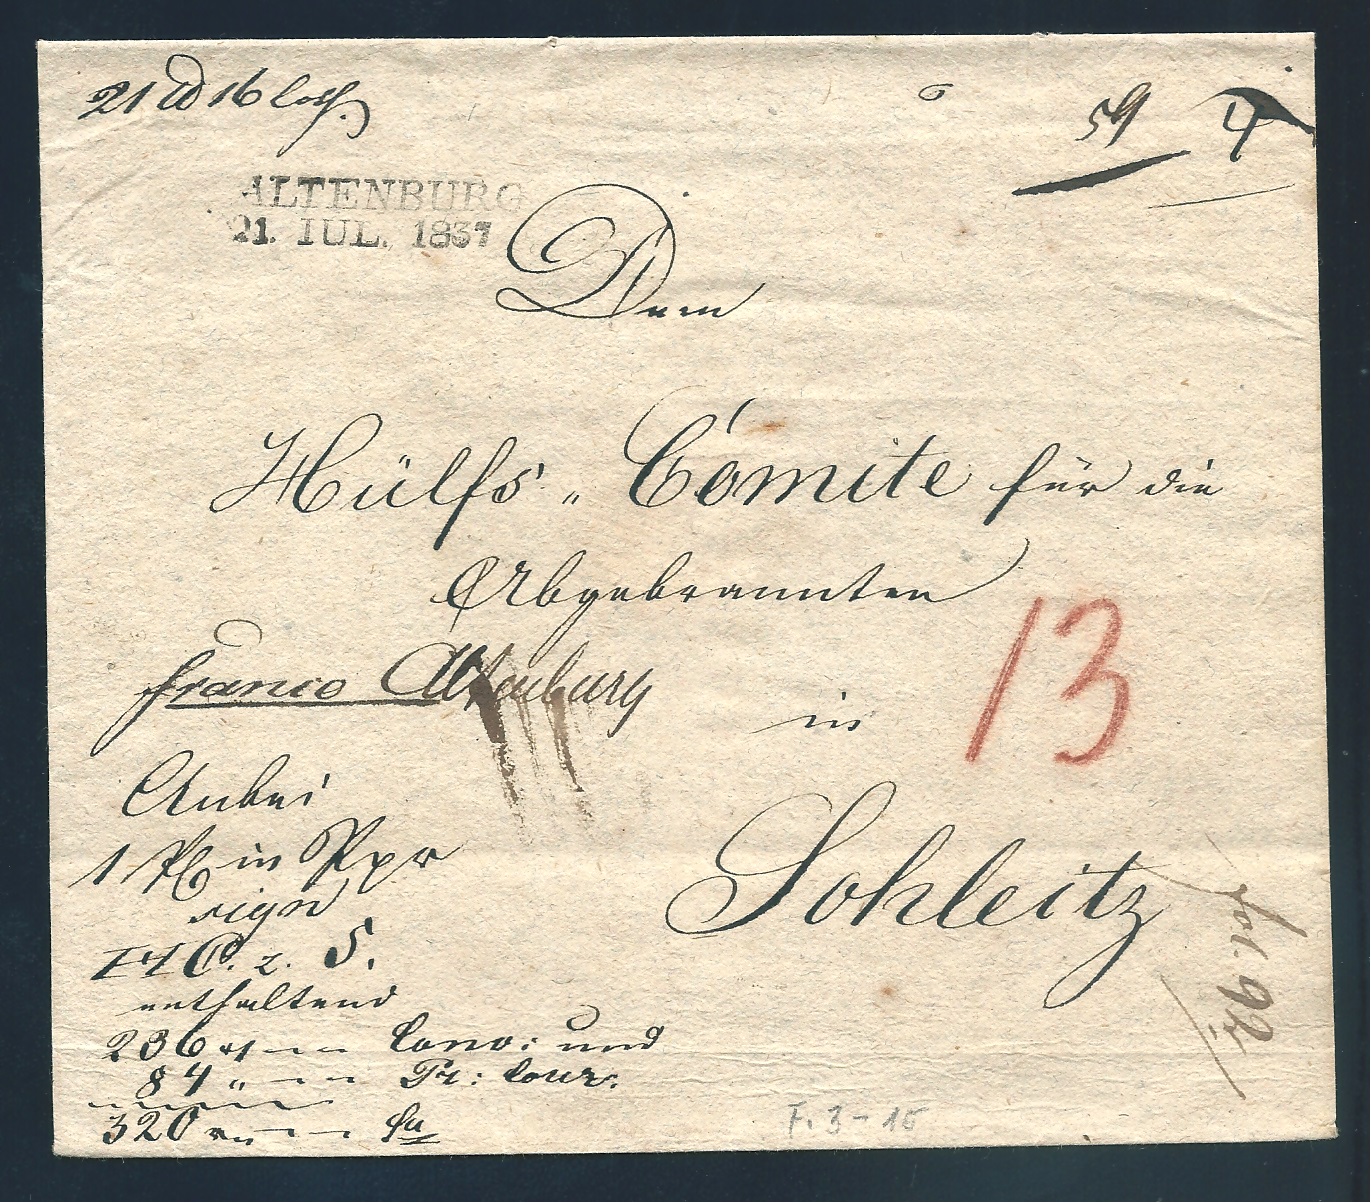 21 ℔ 16 loth.
59 4
ALTENBURG
21. IUL. 1837
Dem
Hülfs „ Comite für die
Abgebrannten
franco Altenburg
in
13
Schleitz
Anbei
1 in Ppr
sign
H C. z. S.
enthaltend
236 — — Conv: und
84 „ — — Pr: Cour.
320 — — Sa
F. 3 - 15